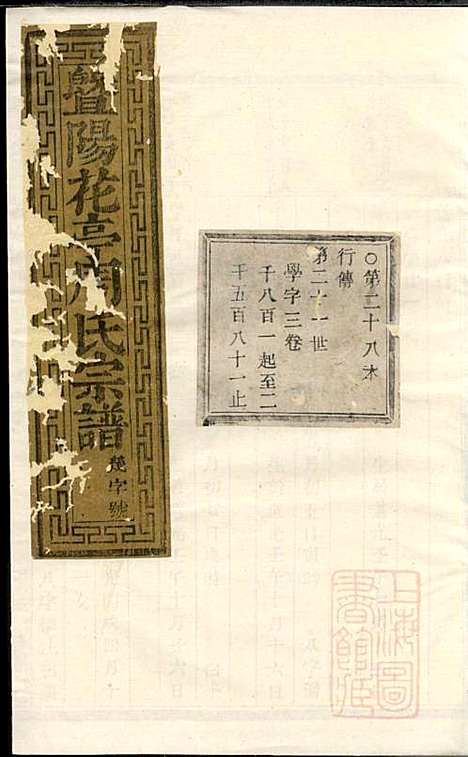 暨陽花亭周氏宗譜
字號
○第二十八本
行傳
第二十一世
學字三卷
千八百一起至二
千五百八十一止
上海圖
書館藏